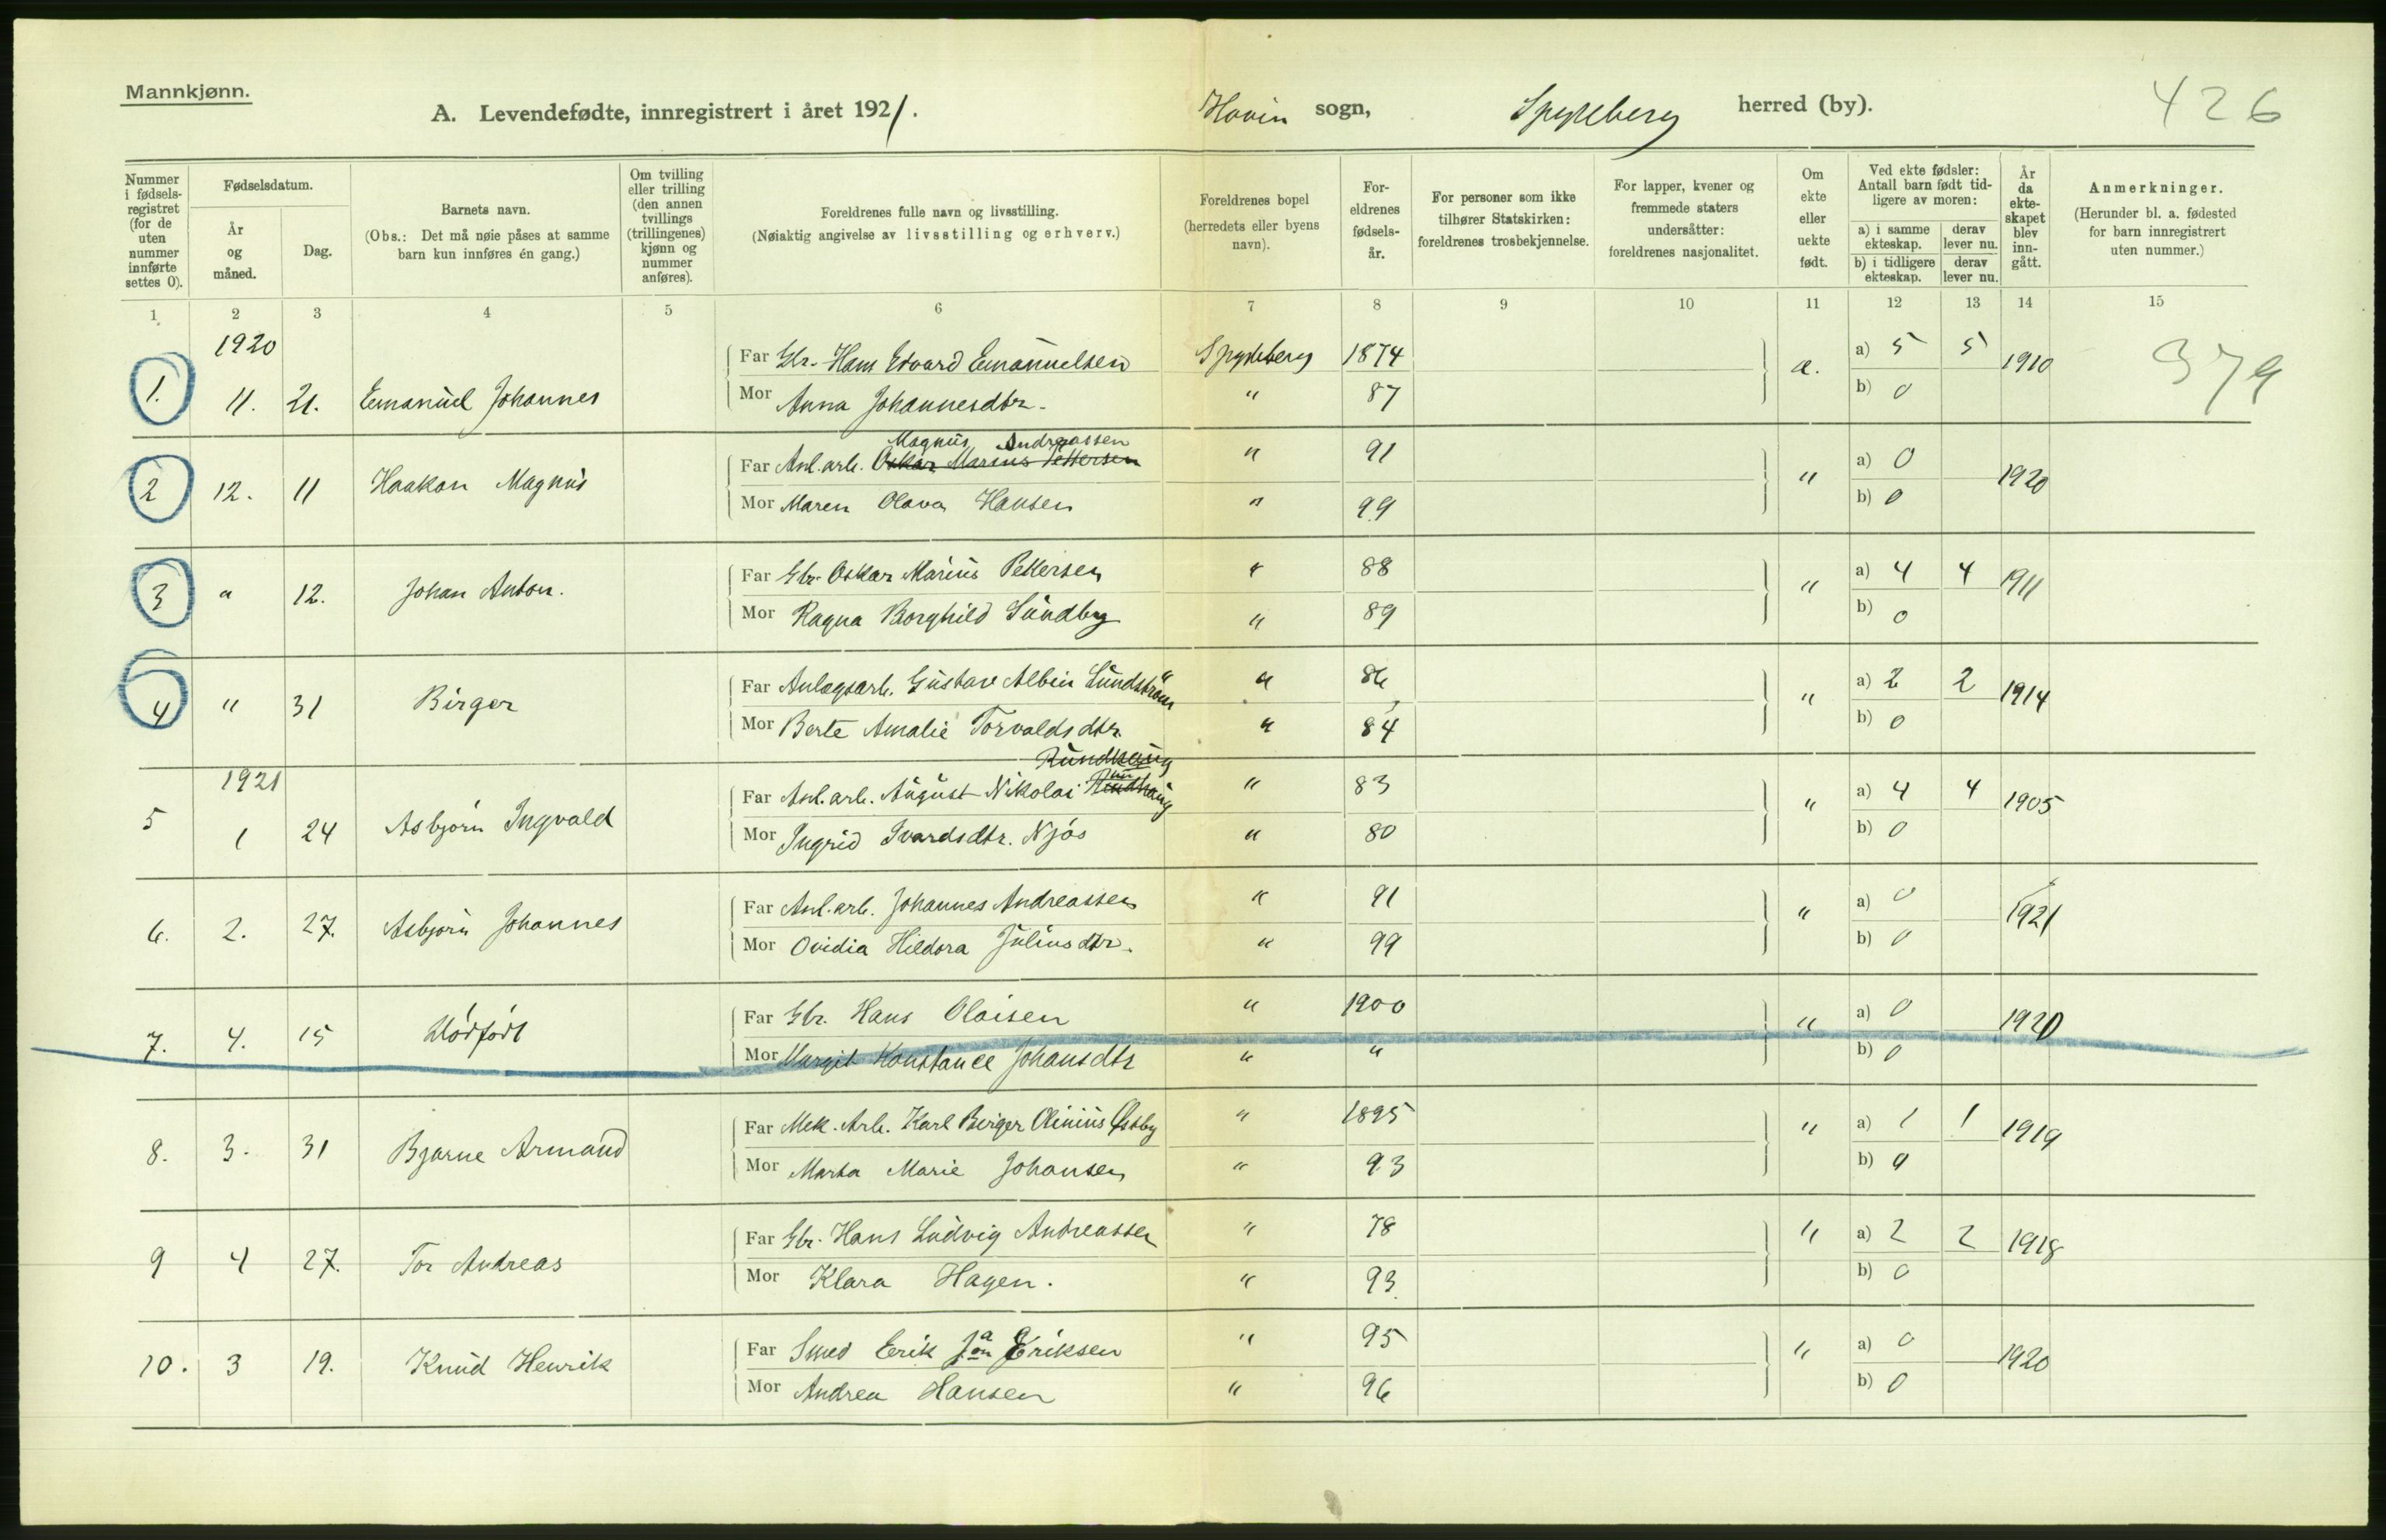 Mannkjønn.
A. Levendefødte, innregistrert i året 1921. Hovin sogn, Spydeberg herred (by). 426
Nummer i fødselsregistret (for de uten nummer innførte settes 0).
Fødselsdatum.
År og måned.
Dag.
Barnets navn.
(Obs.: Det må nøie påses at samme barn kun innføres én gang.)
Om tvilling eller trilling (den annen tvillings (trillingenes) kjønn og nummer anføres).
Foreldrenes fulle navn og livsstilling.
(Nøiaktig angivelse av livsstilling og erhverv.)
Foreldrenes bopel (herredets eller byens navn).
Foreldrenes fødselsår.
For personer som ikke tilhører Statskirken: foreldrenes trosbekjennelse.
For lapper, kvener og fremmede staters undersåtter: foreldrenes nasjonalitet.
Om ekte eller uekte født.
Ved ekte fødsler: Antall barn født tidligere av moren:
a) i samme ekteskap. derav lever nu.
b) i tidligere ekteskap. derav lever nu.
År da ekteskapet blev inngått.
Anmerkninger.
(Herunder bl. a. fødested for barn innregistrert uten nummer.)
1 2 3 4 5 6 7 8 9 10 11 12 13 14 15
1920
1. 11. 21. Emanuel Johannes Far Gbr. Hans Edvard Emanuelsen Spydeberg 1874 e. a) 5 5 1910 379
Mor Anna Johannesdtr. " 87 b) 0
Magnus Andreassen
2 12. 11 Haakon Magnus Far Anl. arb. Oskar Marius Pettersen " 91 " a) 0 1920
Mor Maren Olava Hansen " 99 b) 0
3 " 12. Johan Anton. Far Gbr. Oskar Marius Pettersen " 88 " a) 4 4 1911
Mor Ragna Borghild Sundby " 89 b) 0
4 " 31 Birger Far Anlegsarb. Gustav Albin Lundström " 86 " a) 2 2 1914
Mor Berte Amalie Torvaldsdtr. " 84 b) 0
1921
5 1 24 Asbjørn Ingvald Far Anl. arb. August Nikolai Rundhaug " 83 " a) 4 4 1905
Mor Ingrid Ivarsdtr. Njøs " 80 b) 0
6. 2. 27. Asbjørn Johannes Far Anl. arb. Johannes Andreassen " 91 " a) 0 1921
Mor Ovidia Hildora Juliusdtr. " 99 b) 0
7. 4. 15 Dødfødt Far Gbr. Hans Olaisen " 1900 " a) 0 1920
Mor Margit Konstance Johansdtr " " b) 0
8. 3. 31 Bjarne Armand Far Mek. Arb. Karl Birger Olinius Østby " 1895 " a) 1 1 1919
Mor Marta Marie Johansen " 93 b) 0
9 4 27. Tor Andreas Far Gbr. Hans Ludvig Andreassen " 78 " a) 2 2 1918
Mor Klara Hagen. " 93. b) 0
10. 3 19. Knud Henrik Far Smed Erik Jan Eriksen " 95 " a) 0 1920
Mor Andrea Hansen " 96 b) 0